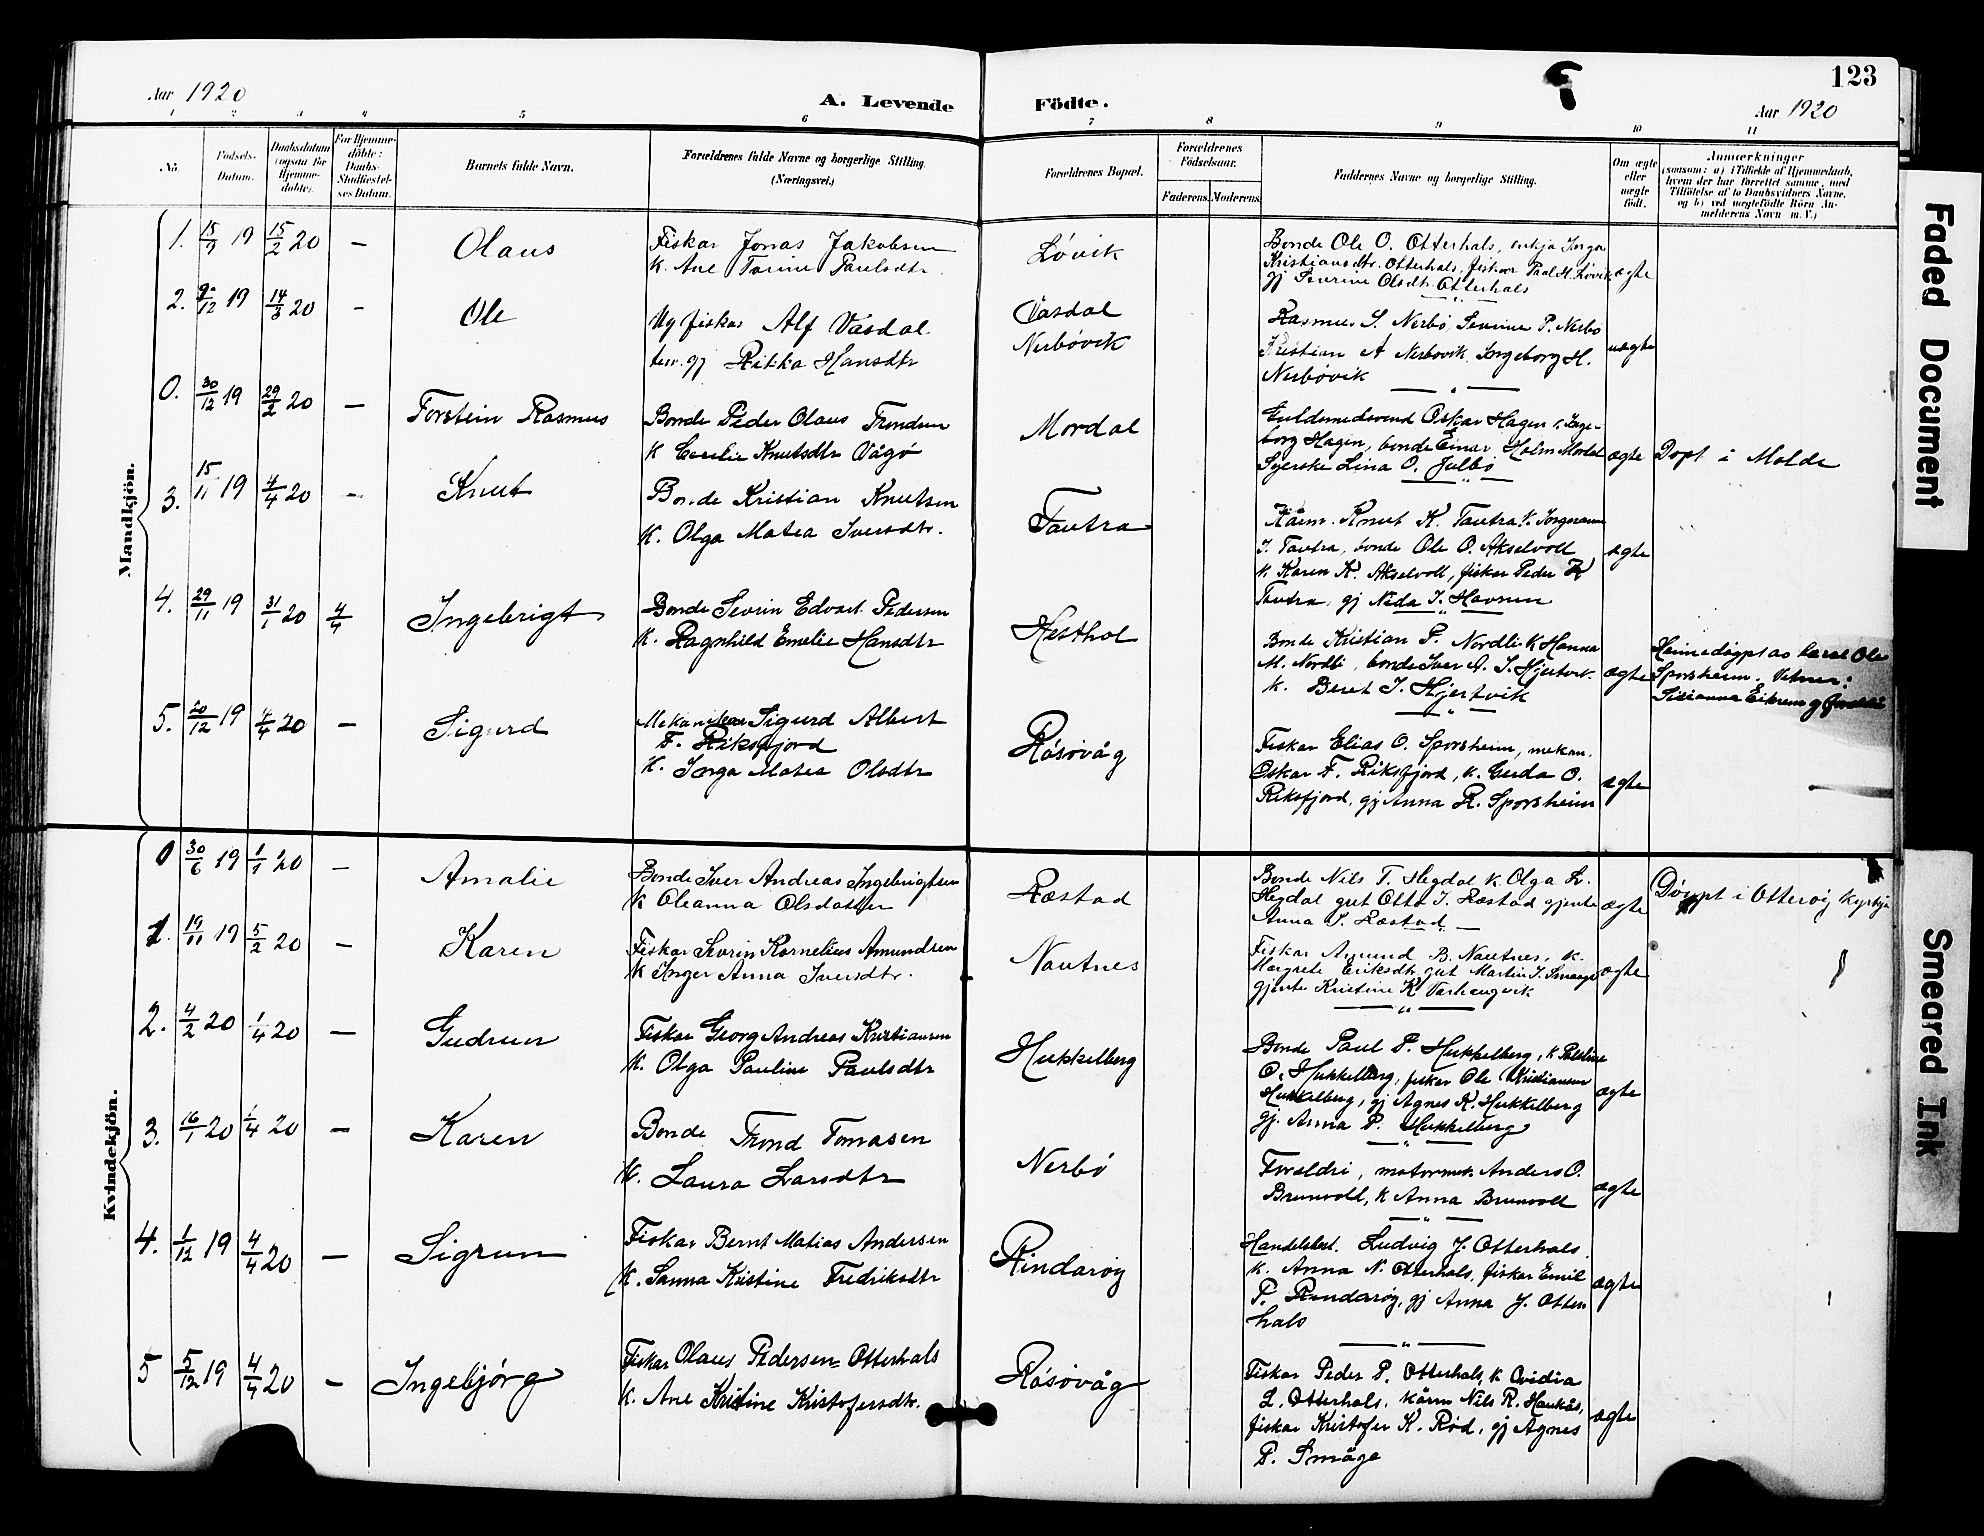 123
Aar 1920
A. Levende Födte.
Aar 1920
1 2 3 4 5 6 7 8 9 10 11
No.
Födsels-
Datum.
Daabsdatum
(ogsaa for
Hjemme-
döbte).
For Hjemme-
döbte:
Daabs-
Stadfæstel-
ses Datum.
Barnets fulde Navn.
Forældrenes fulde Navne og borgerlige Stilling.
(Næringsvei.)
Forældrenes Bopæl.
Forældrenes
Födselsaar.
Faderens. Moderens.
Faddernes Navne og borgerlige Stilling.
Om ægte
eller
uægte
födt.
Anmærkninger
(saasom: a) i Tilfælde af Hjemmedaab,
hvem der har forrettet samme, med
Tilföielse af to Daabsvidners Navne,
og b) ved uægtefödte Börn An-
melderens Navn m. V.)
Mandkjön.
1. 15/9 19 15/2 20 — Olaus
Fiskar Jonas Jakobsen
K. Ane Torine Paulsdtr.
Løvik
Bonde Ole O. Otterhals, enkja Inga
Kristiansdtr. Otterhals, fiskar Paul H. Løvik
gj Severine Olsdtr. Otterhals
ægte
2. 9/12 19 14/3 20 – Ole
Ug fiskar Alf Vasdal
ten. gj Rikka Hansdtr
Vasdal
Nerbøvik
Rasmus S. Nerbø, Severine P. Nerbø
Kristian A Nerbøvik, Ingeborg H.
Nerbøvik
uægte
0. 30/12 19 29/2 20 — Torstein Rasmus
Bonde Peder Olaus Trondsen
K Cecilie Knutsdtr Vågø
Mordal
Guldsmedsvend Oskar Hagen, Inge-
borg Hagen, bonde Einar Holm Mordal
Syerske Lina O. Julbø
ægte
Døpt i Molde
3. 15/11 19 4/4 20 – Knut
Bonde Kristian Knutsen
K. Olga Matea Iversdtr.
Tautra
Kårm. Knut K. Tautra K. Ingeranna
I. Tautra, bonde Ole O. Akselvoll
K. Karen K. Akselvoll, fiskar Peder K
Tautra, gj Nida I. Havnen
ægte
4. 29/11 19 31/1 20 4/4 Ingebrigt
Bonde Sevrin Edvart Pedersen
K. Ragnhild Emelie Hansdtr
Hesthol
Bonde Kristian P. Nordli K Hanna
M. Nordli, bonde Iver A. I. Hjertvik
K. Beret I. Hjertvik
ægte
Heimedøypt av lærar Ole
Sporsheim. Vitner:
5. 20/12 19 4/4 20 — Sigurd
Mekanikar Sigurd Albert
F. Riksfjord
K. Inga Matea Olsdtr
Røsøvåg
Fiskar Elias O. Sporsheim, mekan.
Oskar F. Riksfjord, K. Gerda O.
Riksfjord, gj Anna R. Sporsheim
ægte
Kvindekjön.
0 30/6 19 1/1 20 — Amalie
Bonde Iver Andreas Ingebrigtsen
K Oleanna Olsdatter
Ræstad
Bonde Nils T. Hegdal K. Olga L.
Hegdal gut Otto I. Ræstad gjente
Anna I. Ræstad
ægte
Døypt i Otterøy kyrkja
1. 19/11 19 5/2 20 — Karen
Fiskar Sevrin Kornelius Amundsen
K Inger Anna Iversdtr.
Nautnes
Fiskar Amund B. Nautnes, K.
Margrete Eriksdtr, gut Martin I. Småge
gjente Kristine K. Varhaugvik
ægte
2. 4/2 20 1/4 20 — Gudrun
Fiskar Georg Andreas Kristiansen
K. Olga Pauline Paulsdtr
Hukkelberg
Bonde Paul P. Hukkelberg, K
O. Hukkelberg, fiskar Ole Kristiansen
Hukkelberg, gj Agnes K. Hukkelberg
gj. Anna P. Hukkelberg
ægte
3. 16/1 20 1/4 20 — Karen
Bonde Trond Tomasen
K. Laura Larsdtr
Nerbø
Foreldri, motormek Anders O.
Brunvoll, K Anna Brunvoll
ægte
4. 1/12 19 4/4 20 — Sigrun
Fiskar Bernt Matias Andersen
K. Sanna Kristine Fredriksdtr
Rindarøy
Handelsbest. Ludvig J. Otterhals
K. Anna N. Otterhals, fiskar Emil
P. Rindarøy, gj Anna J. Otter
hals
ægte
5 5/12 19 4/4 20 – Ingebjørg
Fiskar Olaus Pedersen Otterhals
K. Ane Kristine Kristofersdtr.
Røsøvåg
Fiskar Peder P. Otterhals, K Ovidia
L. Otterhals, kårm Nils R. Haukås,
fiskar Kristofer K. Rød, gj Agnes
P. Småge
ægte
Faded Document
Smeared Ink